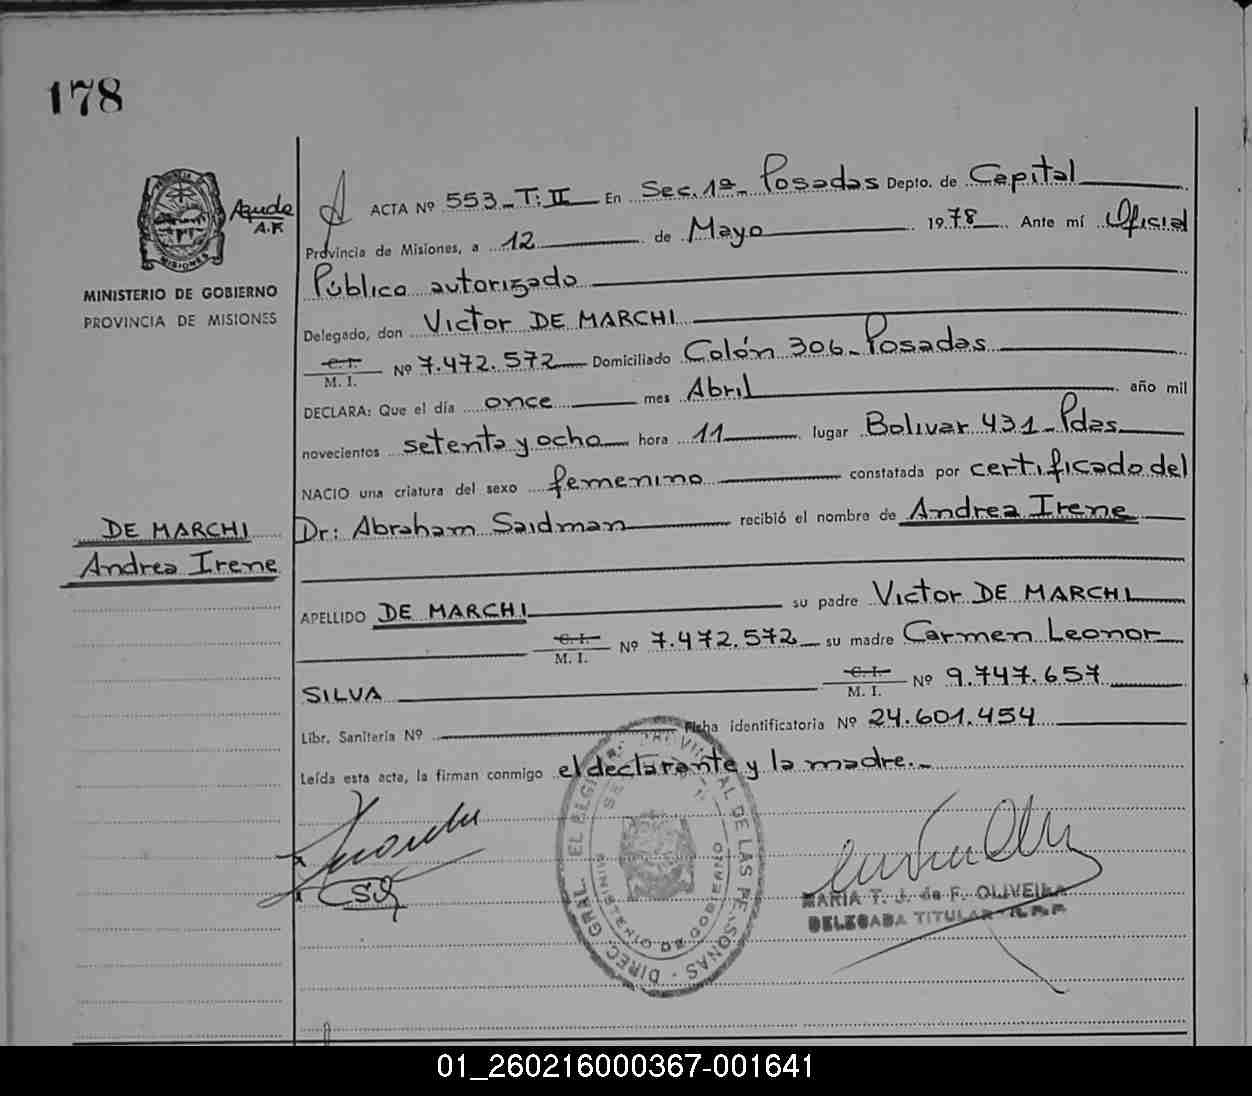 178
MINISTERIO DE GOBIERNO
PROVINCIA DE MISIONES
ACTA Nº 553 - T: II En Sec. 1ª - Posadas Depto. de Capital
Provincia de Misiones, a 12 de Mayo 1978 Ante mí Oficial
Público autorizado
Delegado, don Victor DE MARCHI
C. I.
M. I. Nº 7.472.572 Domiciliado Colón 306 - Posadas
DECLARA: Que el día once mes Abril año mil
novecientos setenta y ocho hora 11 lugar Bolivar 431 - Pdas
NACIO una criatura del sexo femenino constatada por certificado del
Dr: Abraham Saidman recibió el nombre de Andrea Irene
DE MARCHI
Andrea Irene
APELLIDO DE MARCHI su padre Victor DE MARCHI
C. I.
M. I. Nº 7.472.572 su madre Carmen Leonor
SILVA C. I.
M. I. Nº 9.747.657
Libr. Sanitaria Nº Ficha identificatoria Nº 24.601.454
Leída esta acta, la firman conmigo el declarante y la madre.-
MARIA T. J. de F. OLIVEIRA
DELEGADA TITULAR
DE LAS PERSONAS - DIREC. GRAL.
MINISTERIO DE GOBIERNO
01_260216000367-001641